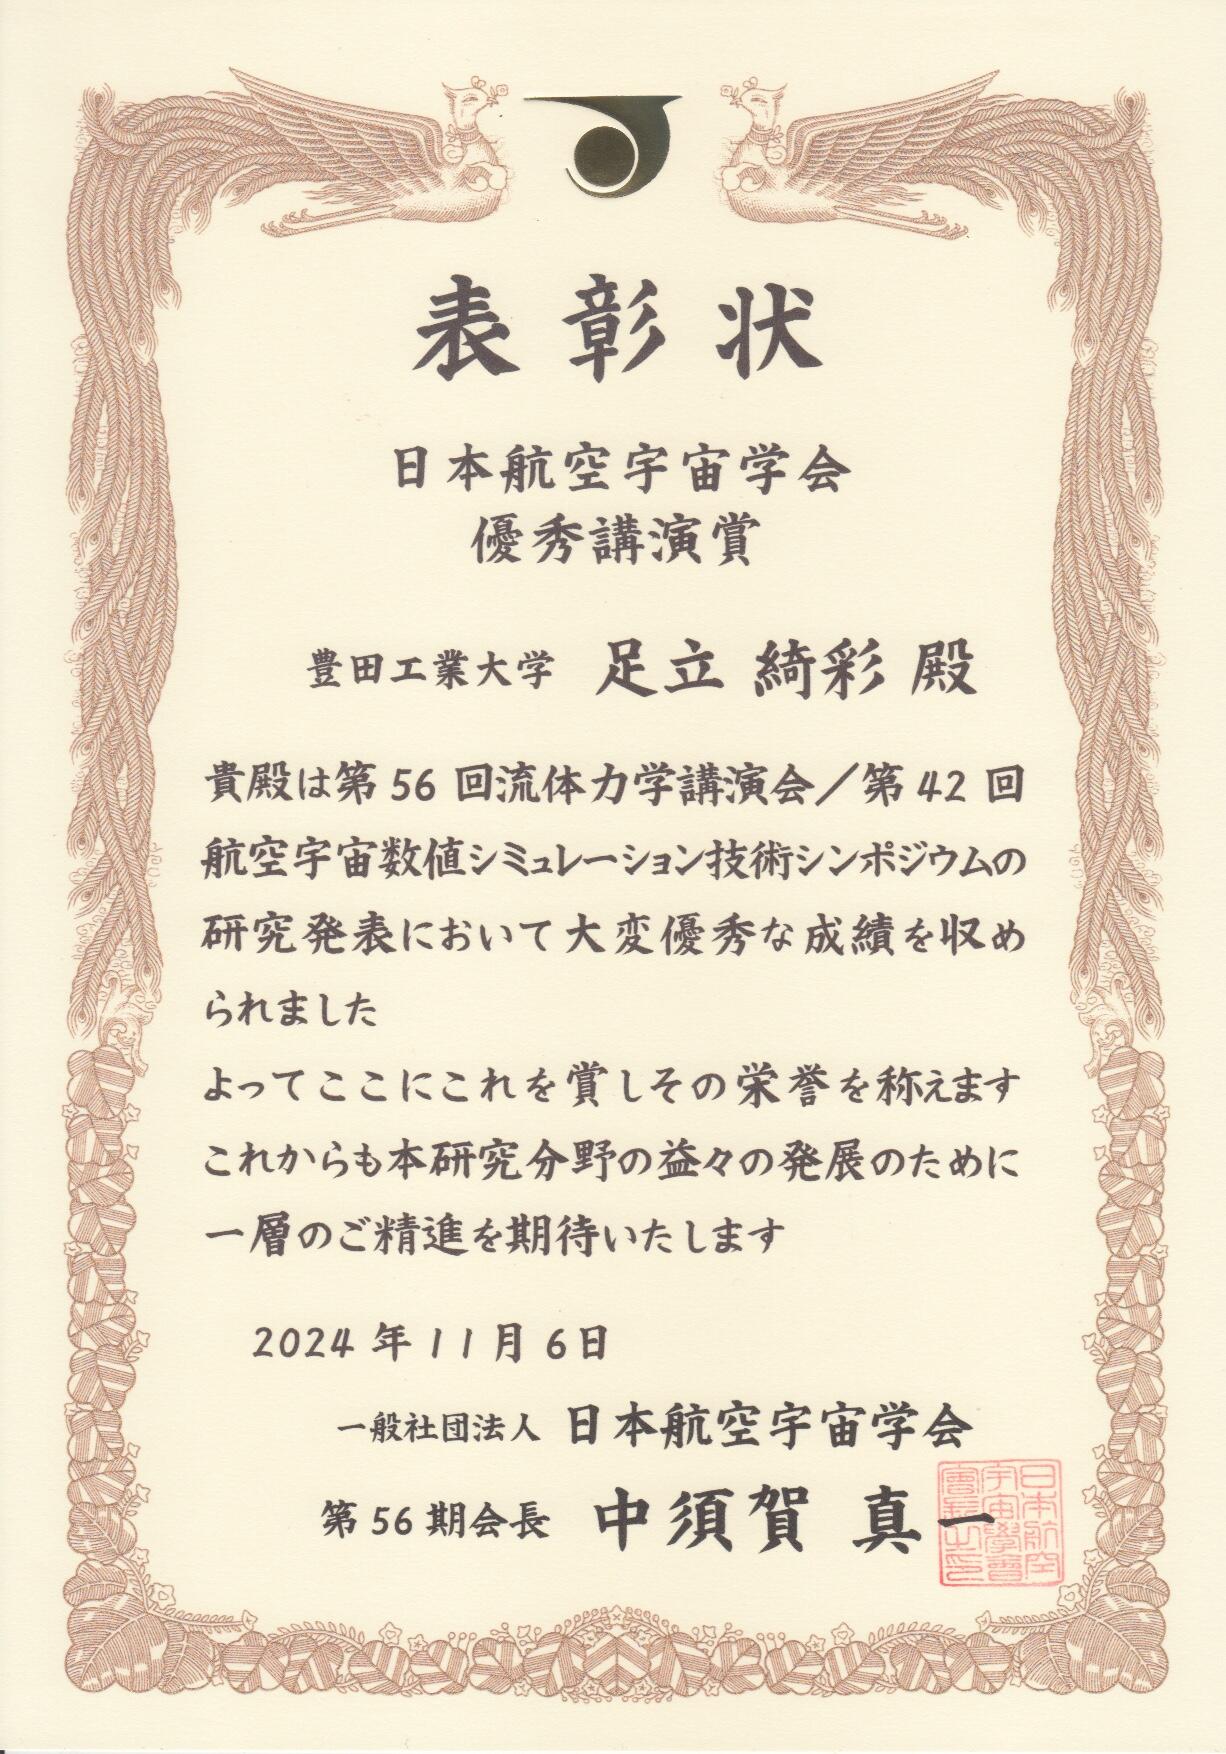 表彰状
日本航空宇宙学会
優秀講演賞
豊田工業大学 足立 綺彩 殿
貴殿は第56回流体力学講演会/第42回
航空宇宙数値シミュレーション技術シンポジウムの
研究発表において大変優秀な成績を収め
られました
よってここにこれを賞しその栄誉を称えます
これからも本研究分野の益々の発展のために
一層のご精進を期待いたします
2024年11月6日
一般社団法人 日本航空宇宙学会
第56期会長 中須賀 真一
日本航空
宇宙學會
會長之印